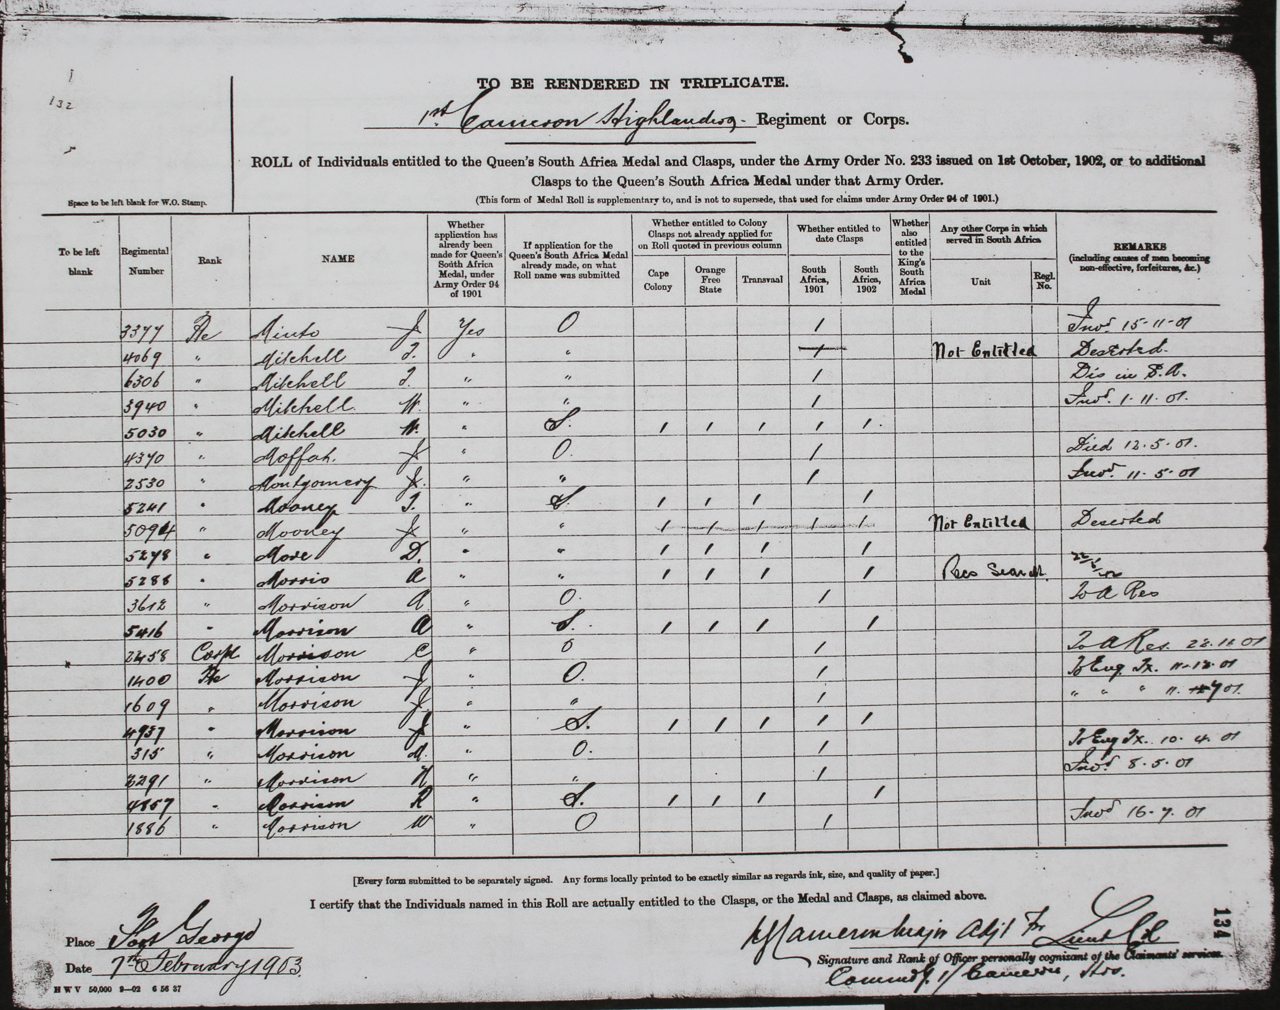 132
TO BE RENDERED IN TRIPLICATE.
1st Cameron Highlanders Regiment or Corps.
ROLL of Individuals entitled to the Queen's South Africa Medal and Clasps, under the Army Order No. 233 issued on 1st October, 1902, or to additional
Clasps to the Queen's South Africa Medal under that Army Order.
(This form of Medal Roll is supplementary to, and is not to supersede, that used for claims under Army Order 94 of 1901.)
Space to be left blank for W.O. Stamp.
To be left blank
Regimental Number
Rank
NAME
Whether application has already been made for Queen's South Africa Medal, under Army Order 94 of 1901
If application for the Queen's South Africa Medal already made, on what Roll name was submitted
Whether entitled to Colony Clasps not already applied for on Roll quoted in previous column
Cape Colony
Orange Free State
Transvaal
Whether entitled to date Clasps
South Africa, 1901
South Africa, 1902
Whether also entitled to the King's South Africa Medal
Any other Corps in which served in South Africa
Unit
Regl. No.
REMARKS
(including causes of men becoming non-effective, forfeitures, &c.)
3377 Pte Minto J Yes O / Invd 15-11-01
4069 " Mitchell J. " " / Not Entitled Deserted.
6306 " Mitchell J. " " / Dis in S.A.
3940 " Mitchell W. " " / Invd. 1-11-01.
5030 " Mitchell W. " S. / / / / /
4370 " Moffat. J. " O. / Died 12.5.01.
2530 " Montgomery J. " " / Invd. 11-5-01
5241 " Mooney T. " S. / / / /
5094 " Mooney J. " " / / / / / Not Entitled Deserted
5278 " More D. " " / / / /
5288 " Morris A " " / / / / Rees Search
3612 " Morrison A " O. / To A Res
5416 " Morrison A " S. / / / /
2458 Corpl Morrison C " O / To A Res. 22.11.01
1400 Pte Morrison J " O. / To Eng Tx. 11-12-01
1609 " Morrison J. " " / " " " 11. 7 01.
4937 " Morrison J " S. / / / / /
315 " Morrison M. " O. / To Eng Tx. 10. 4. 01
2291 " Morrison N " " / Invd. 8-5-01
4857 " Morrison R " S. / / / /
1886 " Morrison W " O / Invd 16-7-01
[Every form submitted to be separately signed. Any forms locally printed to be exactly similar as regards ink, size, and quality of paper.]
I certify that the Individuals named in this Roll are actually entitled to the Clasps, or the Medal and Clasps, as claimed above.
Place Fort George
Cameron Major Adjt For Lieut Col
Signature and Rank of Officer personally cognizant of the Claimants' services.
Date 7th February 1903.
Commdg. 1/ Cameron, Hrs.
H W V 50,000 9—02 6 56 37
134